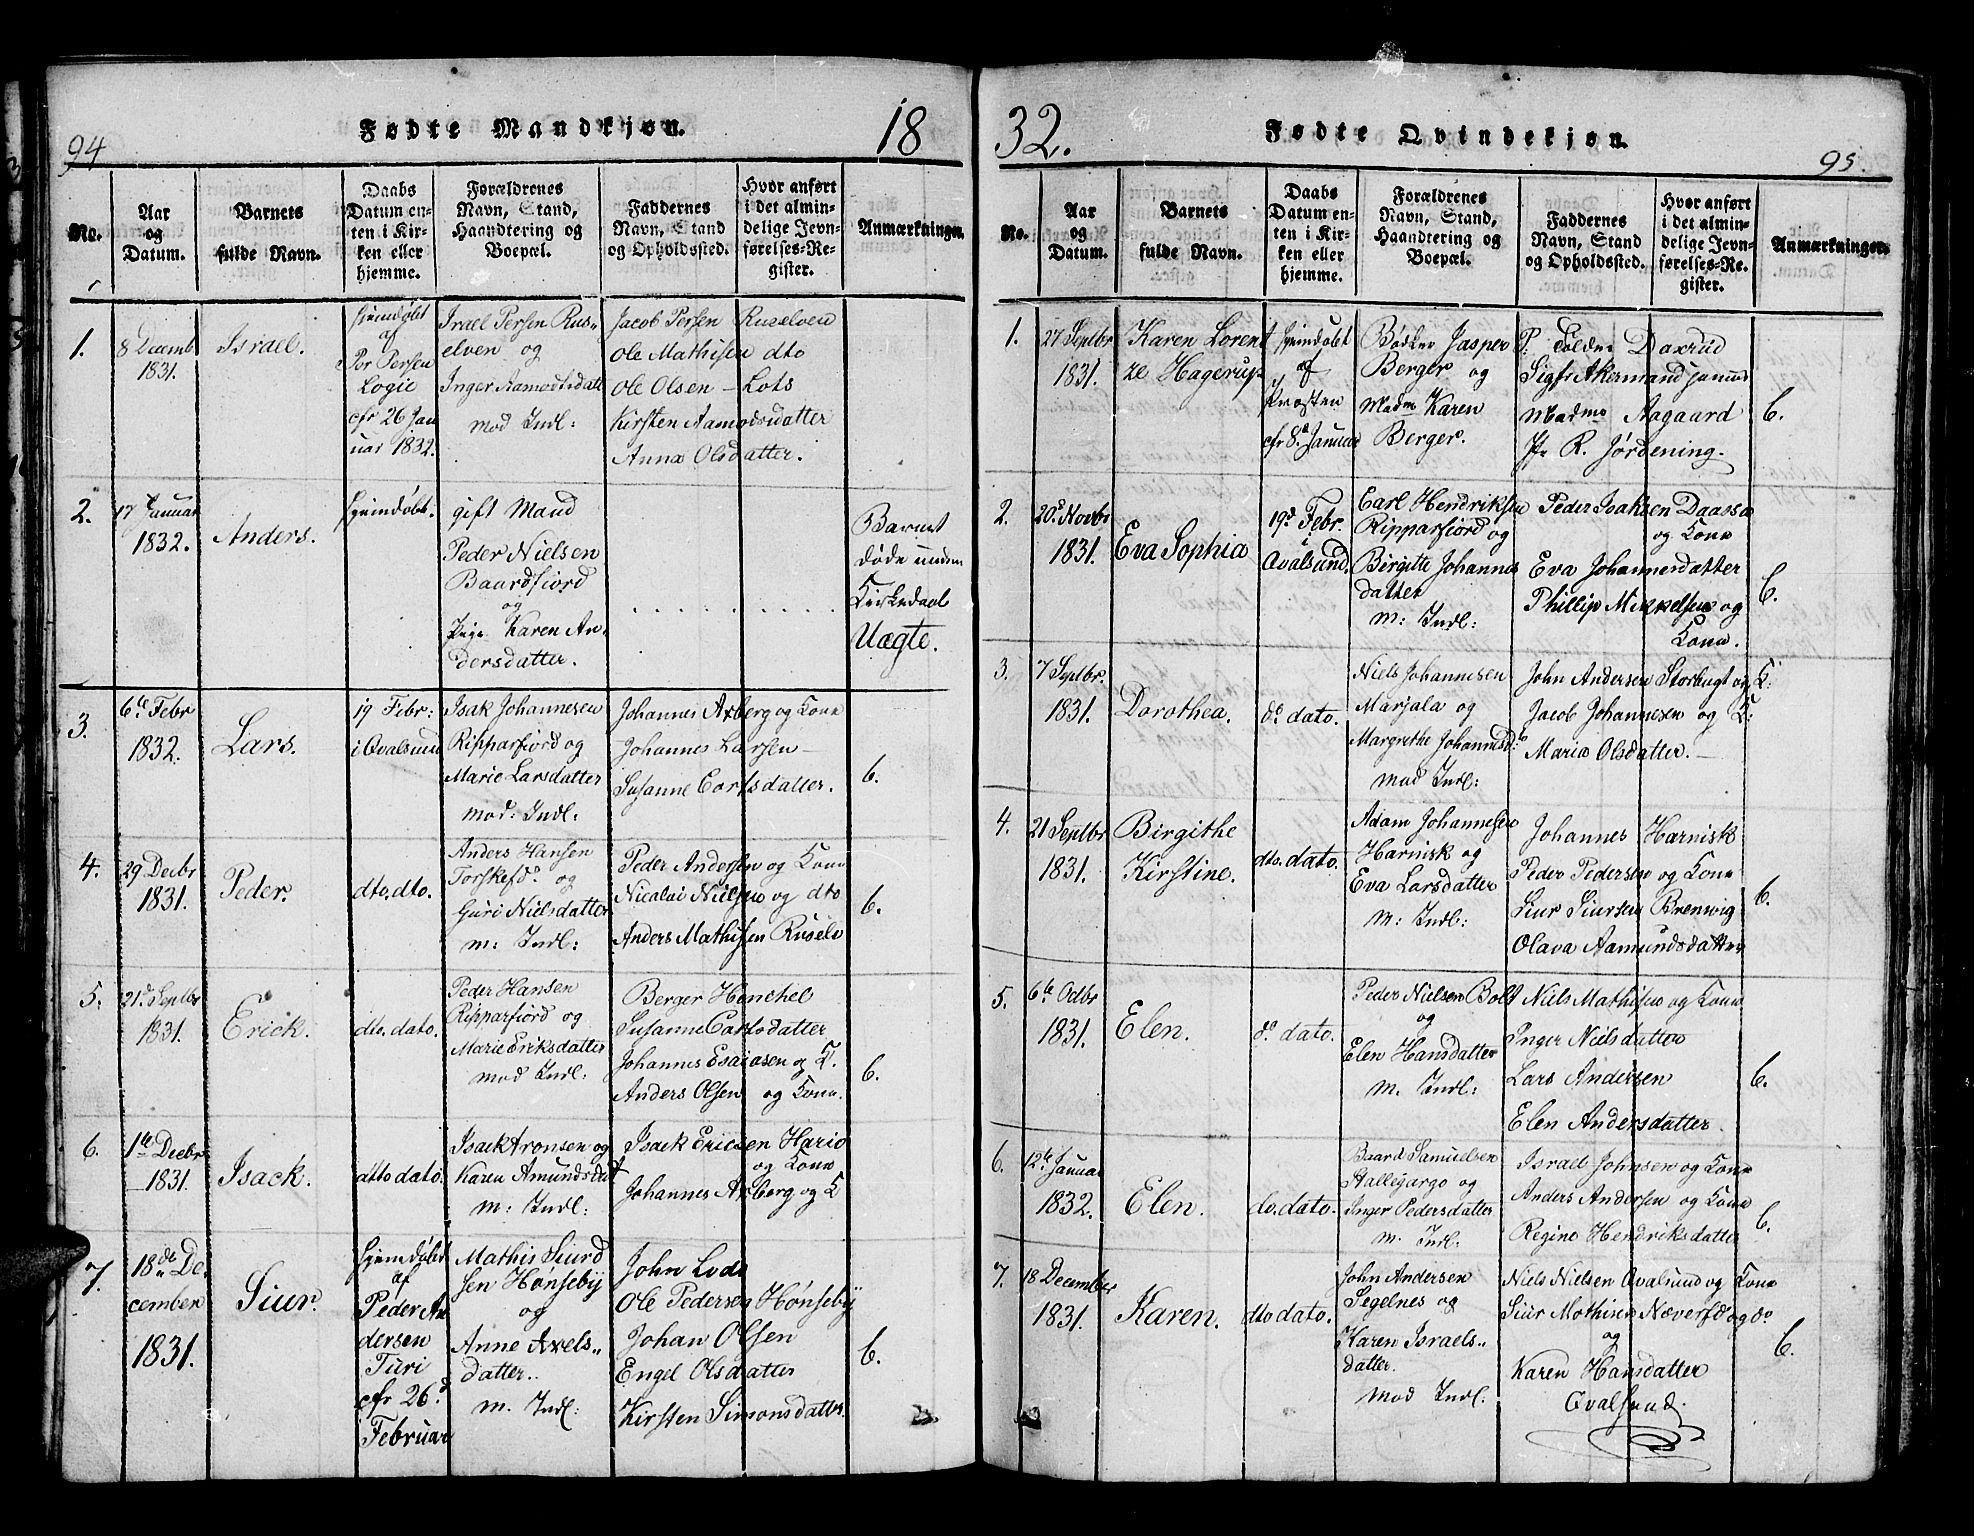 94
Fødte Mandkjøn.
18
No.
Aar
og
Datum.
Barnets
fulde Navn.
Daabs
Datum en-
ten i Kir-
ken eller
hjemme.
Forældrenes
Navn, Stand,
Haandtering og
Boepæl.
Faddernes
Navn, Stand
og Opholdssted.
Hvor anført
i det almin-
delige Jevn-
førelses-Re-
gister.
Anmærkninger.
1.
8 Decemb
1831.
Israel.
hjemdøbt
af
Per Persen
Logie
cfr 26 Jan
uar 1832.
Israel Persen Rus„
elven og
Inger Aamodtsdatt
mod Indl:
Jacob Persen Ruselven
Ole Mathisen dto
Ole Olsen – Lots
Kirsten Aamodsdatter
Anna Olsdatter.
2.
17 Januar
1832.
Anders.
hjemdøbt.
gift Mand
Peder Nielsen
Baardfjord
og
Pige Karen An
dersdatter.
Barnet
døde uden
Kirkedaab
Uægte.
3.
6te Febr
1832.
Lars.
19 Febr:
i Qvalsund
Isak Johannesen
Ripparfiord og
Marie Larsdatter
mod: Indl:
Johannes Axberg og Kone
Johannes Larsen –
Susanne Carlsdatter.
6.
4.
29 Decbr
1831.
Peder.
dto. dto.
Anders Hansen
Torskefd. og
Guri Nielsdatter
m: Indl:
Peder Andersen og Kone
Nicolai Nielsen og dto
Anders Mathisen Ruselv
6.
5.
21de Septbr
1831.
Erick.
dto. dato.
Peder Hansen
Ripparfiord og
Marie Eriksdatter
mod Indl:
Berger Henchel
Susanne Carlsdatter
Johannes Esaiasen og K.
Anders Olsen og Kone.
6.
6.
1te Decbr
1831.
Isack.
dtto dato.
Isack Aronsen og
Karen Amundsdat
m: Indl:
Isack Ericsen Hario
og Kone
Johannes Axberg og K
7.
18de De„
cember
1831.
Siur.
hjemdøbt
af
Peder An
dersen
Turi
cfr 26d
Februar
Mathis Siurd
sen Hønseby
og
Anne Axels„
datter.
m. Indl:
John Lode
Ole Pedersen Hønseby
Johan Olsen
Engel Olsdatter
Kirsten Simonsdatter.
6.
32.
Fødte Qvindekjøn.
95.
No.
Aar
og
Datum.
Barnets
fulde Navn.
Daabs
Datum en-
ten i Kir-
ken eller
hjemme.
Forældrenes
Navn, Stand,
Haandtering og
Boepæl.
Faddernes
Navn, Stand
og Opholdssted.
Hvor anført
i det almin-
delige Jevn-
førelses-Re-
gister.
Anmærkninger.
1.
27 Septbr
1831.
Karen Lorent
ze Hagerup
hjemdøbt
af
Provsten
cfr 8d Januar
Bødker Jasper
Berger og
Madme Karen
Berger.
Daxrud
Sigfr Akermand
Madme Aagaard
Hr R. Jørdening.
6.
2.
20d Novbr
1831.
Eva Sophia
19d Febr.
i
Qvalsund.
Carl Hendriksen
Ripparfiord og
Birgitte Johannes
datter
m: Indl:
Peder Isaksen Daassa
og Kone
Eva Johannesdatter
Phillip Mikkelsen og
Kone.
6.
3.
7 Septbr.
1831.
Dorothea.
do dato.
Niels Johannesen
Marjala og
Margrethe Johannisd:
mod Indl:
John Andersen Storbugt og K:
Jacob Johannesen og K:
Maria Olsdatter. –
4.
21 Septbr
1831.
Birgithe
Kirstine.
dto. dato.
Adam Johannesen
Harnisk og
Eva Larsdatter
m: Indl:
Johannes Harnisk
Peder Pedersen og Kone
Siur Siursen Brenvig
Olava Aamundsdatter
6.
5.
6te Octbr
1831.
Elen.
do dato.
Peder Nielsen Bolt
og
Elen Hansdatter
m. Indl:
Niels Mathisen og Kone
Inger Nielsdatter
Lars Andersen
Elen Andersdatter.
6.
6.
12te Januar
1832.
Elen.
do. dato.
Baard Samuelsen
Stallegargo og
Inger Pedersdatter
m. Indl:
Israel Johnsen og Kone
Anders Andersen og Kone
Regine Hendriksdatter
6.
7.
18 December
1831.
Karen.
dto dato.
John Andersen
Segelnes og
Karen Israels„
datter.
mod Indl:
Niels Nielsen Qvalsund og Kone
Siur Mathisen Næverfd og do
og
Karen Hansdatter
Qvalsund.
6.